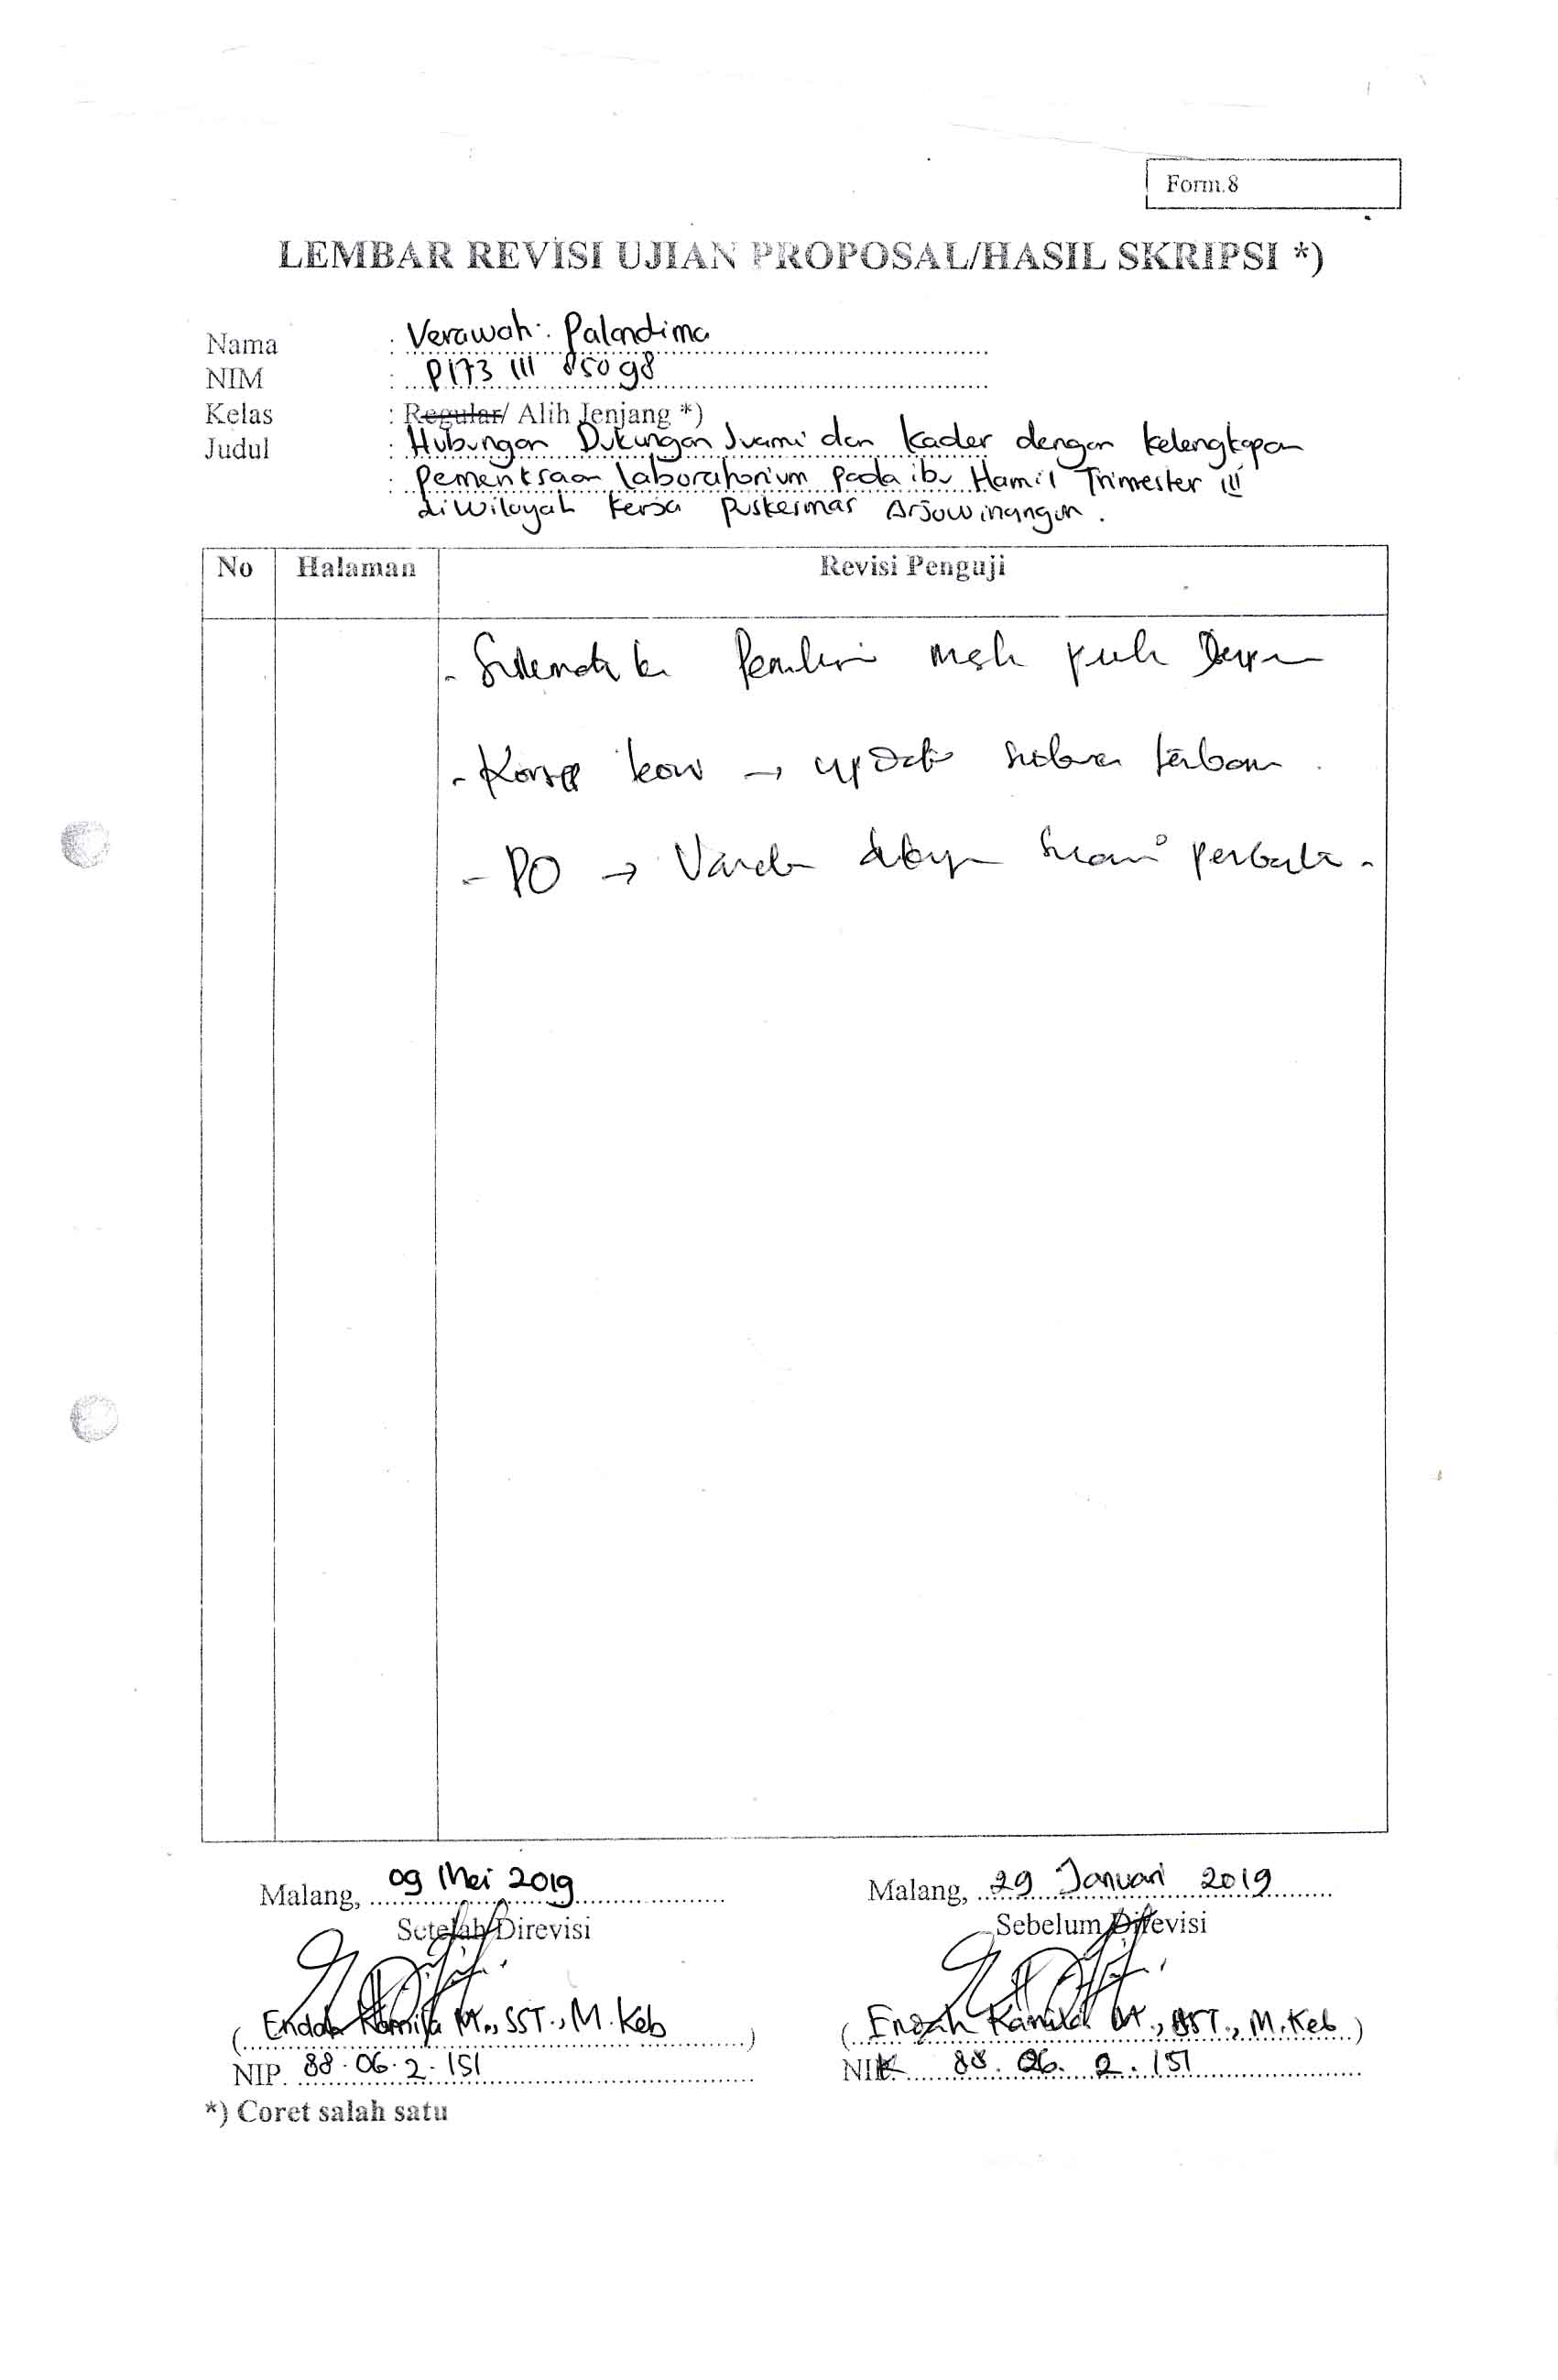 Form.8
LEMBAR REVISI UJIAN PROPOSAL/HASIL SKRIPSI *)
Nama : Verawati Palandima
NIM : P173 111 85098
Kelas : Regular/ Alih Jenjang *)
Judul : Hubungan Dukungan Suami dan Kader dengan kelengkapan
: Pemeriksaan laboratorium pada ibu Hamil Trimester III
di wilayah kerja Puskesmas Arjowinangun.
No Halaman Revisi Penguji
- Sistematika
- Konsep → update terbaru
- PO → suami perbaiki -
Malang, 09 Mei 2019
Setelah Direvisi
(Endah Kamila M., SST., M.Keb)
NIP. 88.06.2.151
Malang, 29 Januari 2019
Sebelum Direvisi
(Endah Kamila M., SST., M.Keb)
NIK 88.06.2.151
*) Coret salah satu